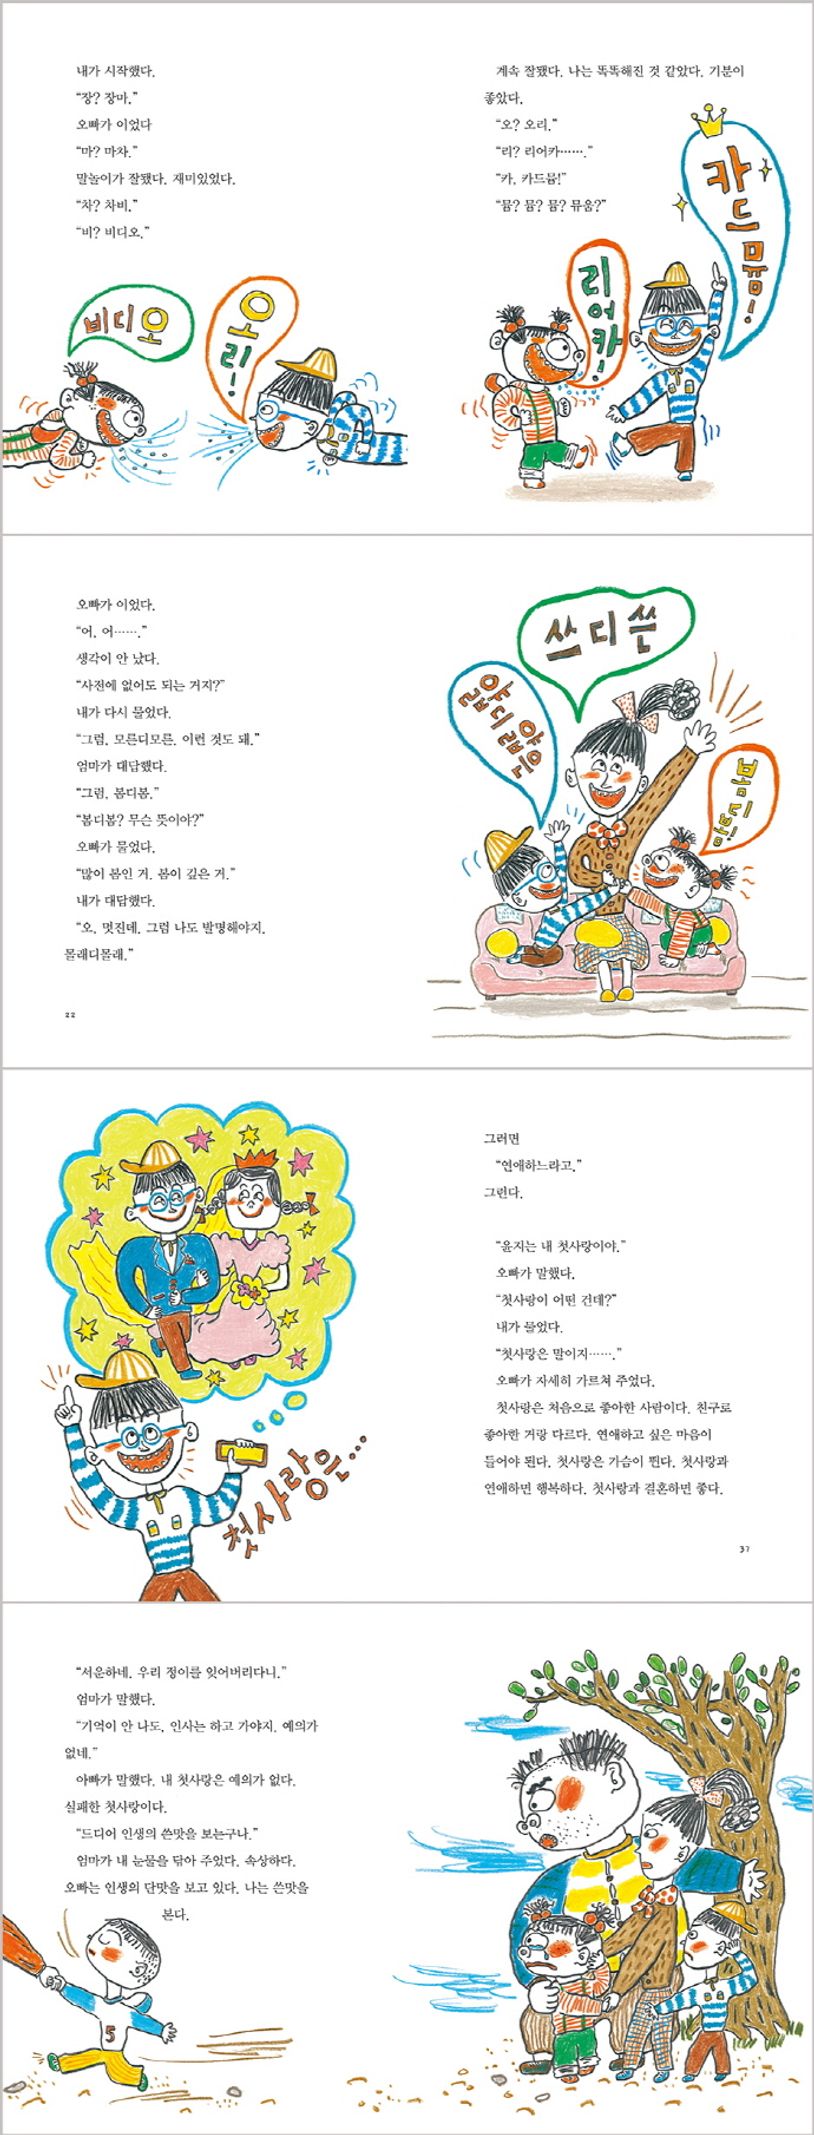 내가 시작했다.
“장? 장마.”
오빠가 이었다
“마? 마차.”
말놀이가 잘됐다. 재미있었다.
“차? 차비.”
“비? 비디오.”
비디오
오리!
계속 잘됐다. 나는 똑똑해진 것 같았다. 기분이
좋았다.
“오? 오리.”
“리? 리어카…….”
“카, 카드뮴!”
“뮴? 뮴? 뮴? 뮤움?”
리어카!
카드뮴!
오빠가 이었다.
“어, 어…….”
생각이 안 났다.
“사전에 없어도 되는 거지?”
내가 다시 물었다.
“그럼, 모른디모른. 이런 것도 돼.”
엄마가 대답했다.
“그럼, 봄디봄.”
“봄디봄? 무슨 뜻이야?”
오빠가 물었다.
“많이 봄인 거. 봄이 깊은 거.”
내가 대답했다.
“오, 멋진데. 그럼 나도 발명해야지.
몰래디몰래.”
22
쓰디쓴
얇디얇은
봄디봄
첫사랑은…
그러면
“연애하느라고.”
그런다.
“윤지는 내 첫사랑이야.”
오빠가 말했다.
“첫사랑이 어떤 건데?”
내가 물었다.
“첫사랑은 말이지…….”
오빠가 자세히 가르쳐 주었다.
첫사랑은 처음으로 좋아한 사람이다. 친구로
좋아한 거랑 다르다. 연애하고 싶은 마음이
들어야 된다. 첫사랑은 가슴이 뛴다. 첫사랑과
연애하면 행복하다. 첫사랑과 결혼하면 좋다.
37
“서운하네. 우리 정이를 잊어버리다니.”
엄마가 말했다.
“기억이 안 나도, 인사는 하고 가야지. 예의가
없네.”
아빠가 말했다. 내 첫사랑은 예의가 없다.
실패한 첫사랑이다.
“드디어 인생의 쓴맛을 보는구나.”
엄마가 내 눈물을 닦아 주었다. 속상하다.
오빠는 인생의 단맛을 보고 있다. 나는 쓴맛을
본다.
5